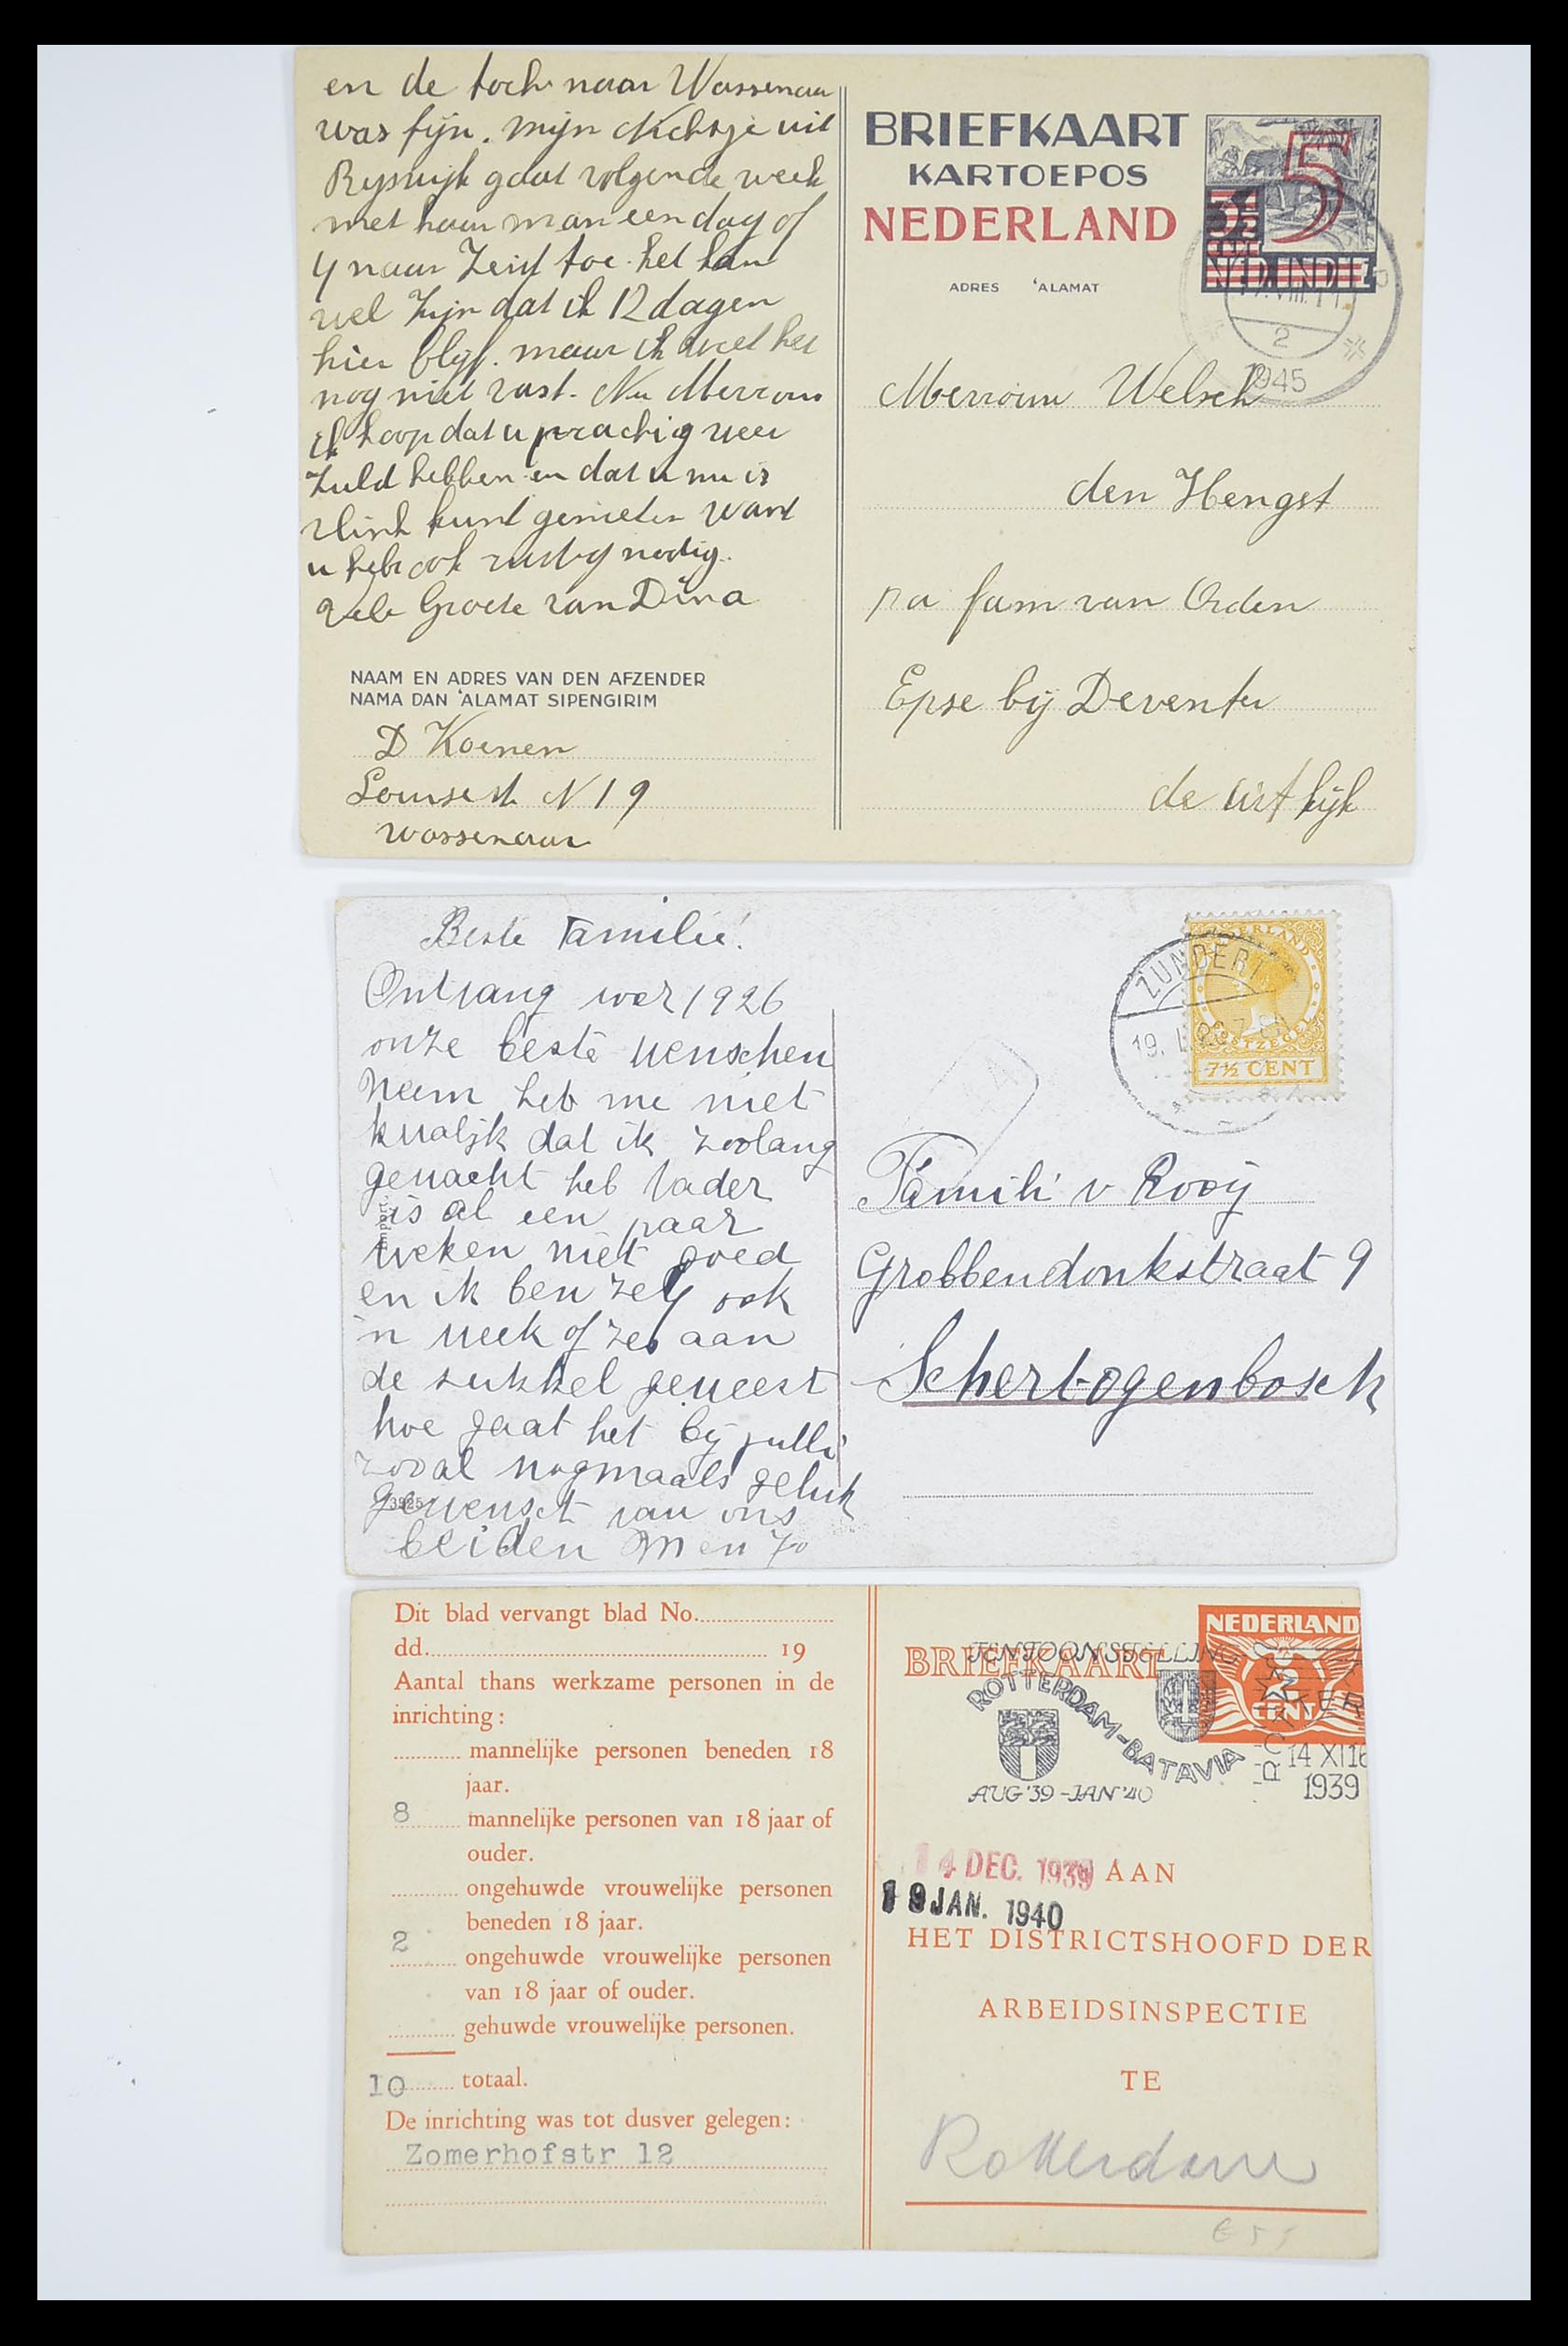 en de toch naar Wassenaar
was fijn. mijn Nichtje uit
Ryswijk gaat volgende week
met haar man een dag of
4 naar Zeist toe. het kan
wel Zijn dat ik 12 dagen
hier blijf. maar ik weet het
nog niet vast. Nu Mevrouw
ik hoop dat u prachtig weer
Zuld hebben en dat u nu is
flink kunt genieten want
u heb ook rust nodig.
Groete van Dina
NAAM EN ADRES VAN DEN AFZENDER
NAMA DAN 'ALAMAT SIPENGIRIM
D Koenen
Louisest N 19
Wassenaar
BRIEFKAART
KARTOEPOS
NEDERLAND
5
3½
CENT
NED. INDIE
ADRES 'ALAMAT
2
1945
Mevrouw Welsch
den Hengst
p a fam van Orden
Epse bij Deventer
de uitkijk
Beste Familie!
Ontvang voor 1926
onze beste wenschen
Neem heb me niet
kwalijk dat ik zoolang
gewacht heb Vader
is al een paar
weken niet goed
en ik ben zelf ook
'n week of zes aan
de sukkel geweest
hoe gaat het bij jullie
zooal nogmaals geluk
gewenscht van ons
beiden M en Jo
3925
NEDERLAND
POSTZEGEL
7½ CENT
ZUNDERT
19. I. 26. 7
Famili v Rooij
Grobbendonkstraat 9
Schertogenbosch
Dit blad vervangt blad No.
dd. 19
Aantal thans werkzame personen in de
inrichting:
mannelijke personen beneden 18
jaar.
8 mannelijke personen van 18 jaar of
ouder.
ongehuwde vrouwelijke personen
beneden 18 jaar.
2 ongehuwde vrouwelijke personen
van 18 jaar of ouder.
gehuwde vrouwelijke personen.
10 totaal.
De inrichting was tot dusver gelegen:
Zomerhofstr 12
BRIEFKAART
NEDERLAND
2
CENT
TENTOONSTELLING
ROTTERDAM-BATAVIA
AUG '39 - JAN '40
14 XI 16
1939
14 DEC. 1939
AAN
19 JAN. 1940
HET DISTRICTSHOOFD DER
ARBEIDSINSPECTIE
TE
Rotterdam